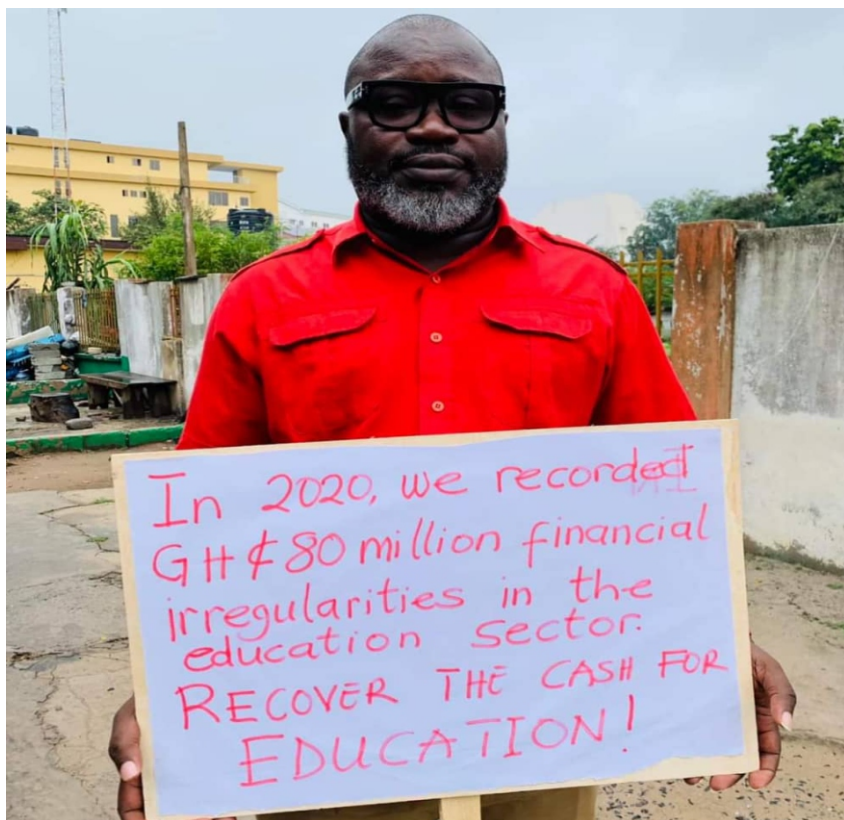 In 2020, we recorded
GH¢80 million financial
irregularities in the
education sector.
RECOVER THE CASH FOR
EDUCATION!